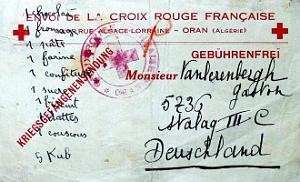 1 chocolat
ENVOI DE LA CROIX ROUGE FRANÇAISE
1 fromage
RUE ALSACE-LORRAINE - ORAN (ALGÉRIE)
1 pâté
GEBÜHRENFREI
1 farine
1 confiture
KRIEGSGEFANGENENSENDUNG
Monsieur Vanlerenbergh
gaston
1 sucre
5736
1 dattes
Stalag III C
1 couscous
Deuschland
5 Kub